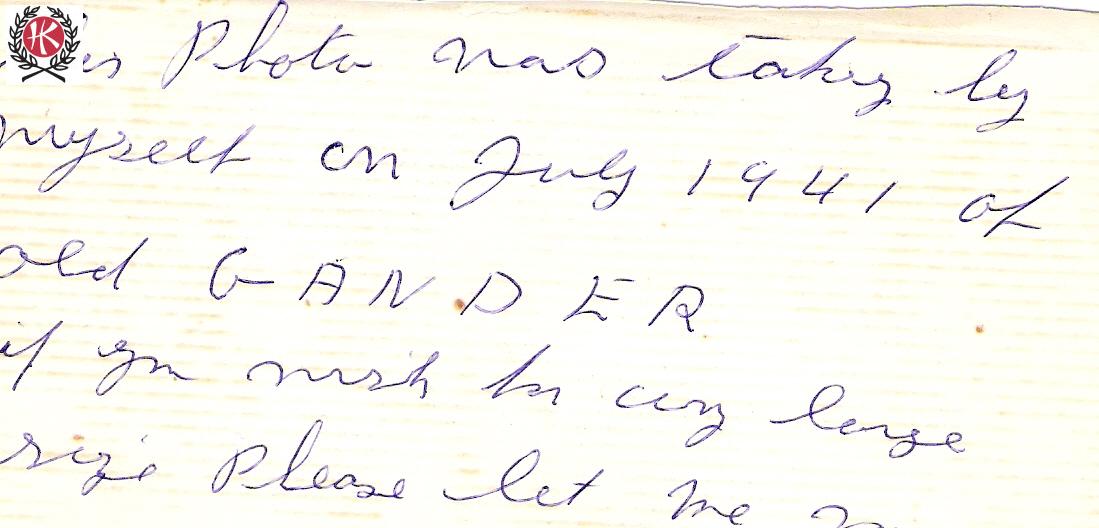 HK
Photo was taken by
myself on July 1941 of
old GANDER
if you wish for any large
size Please let me